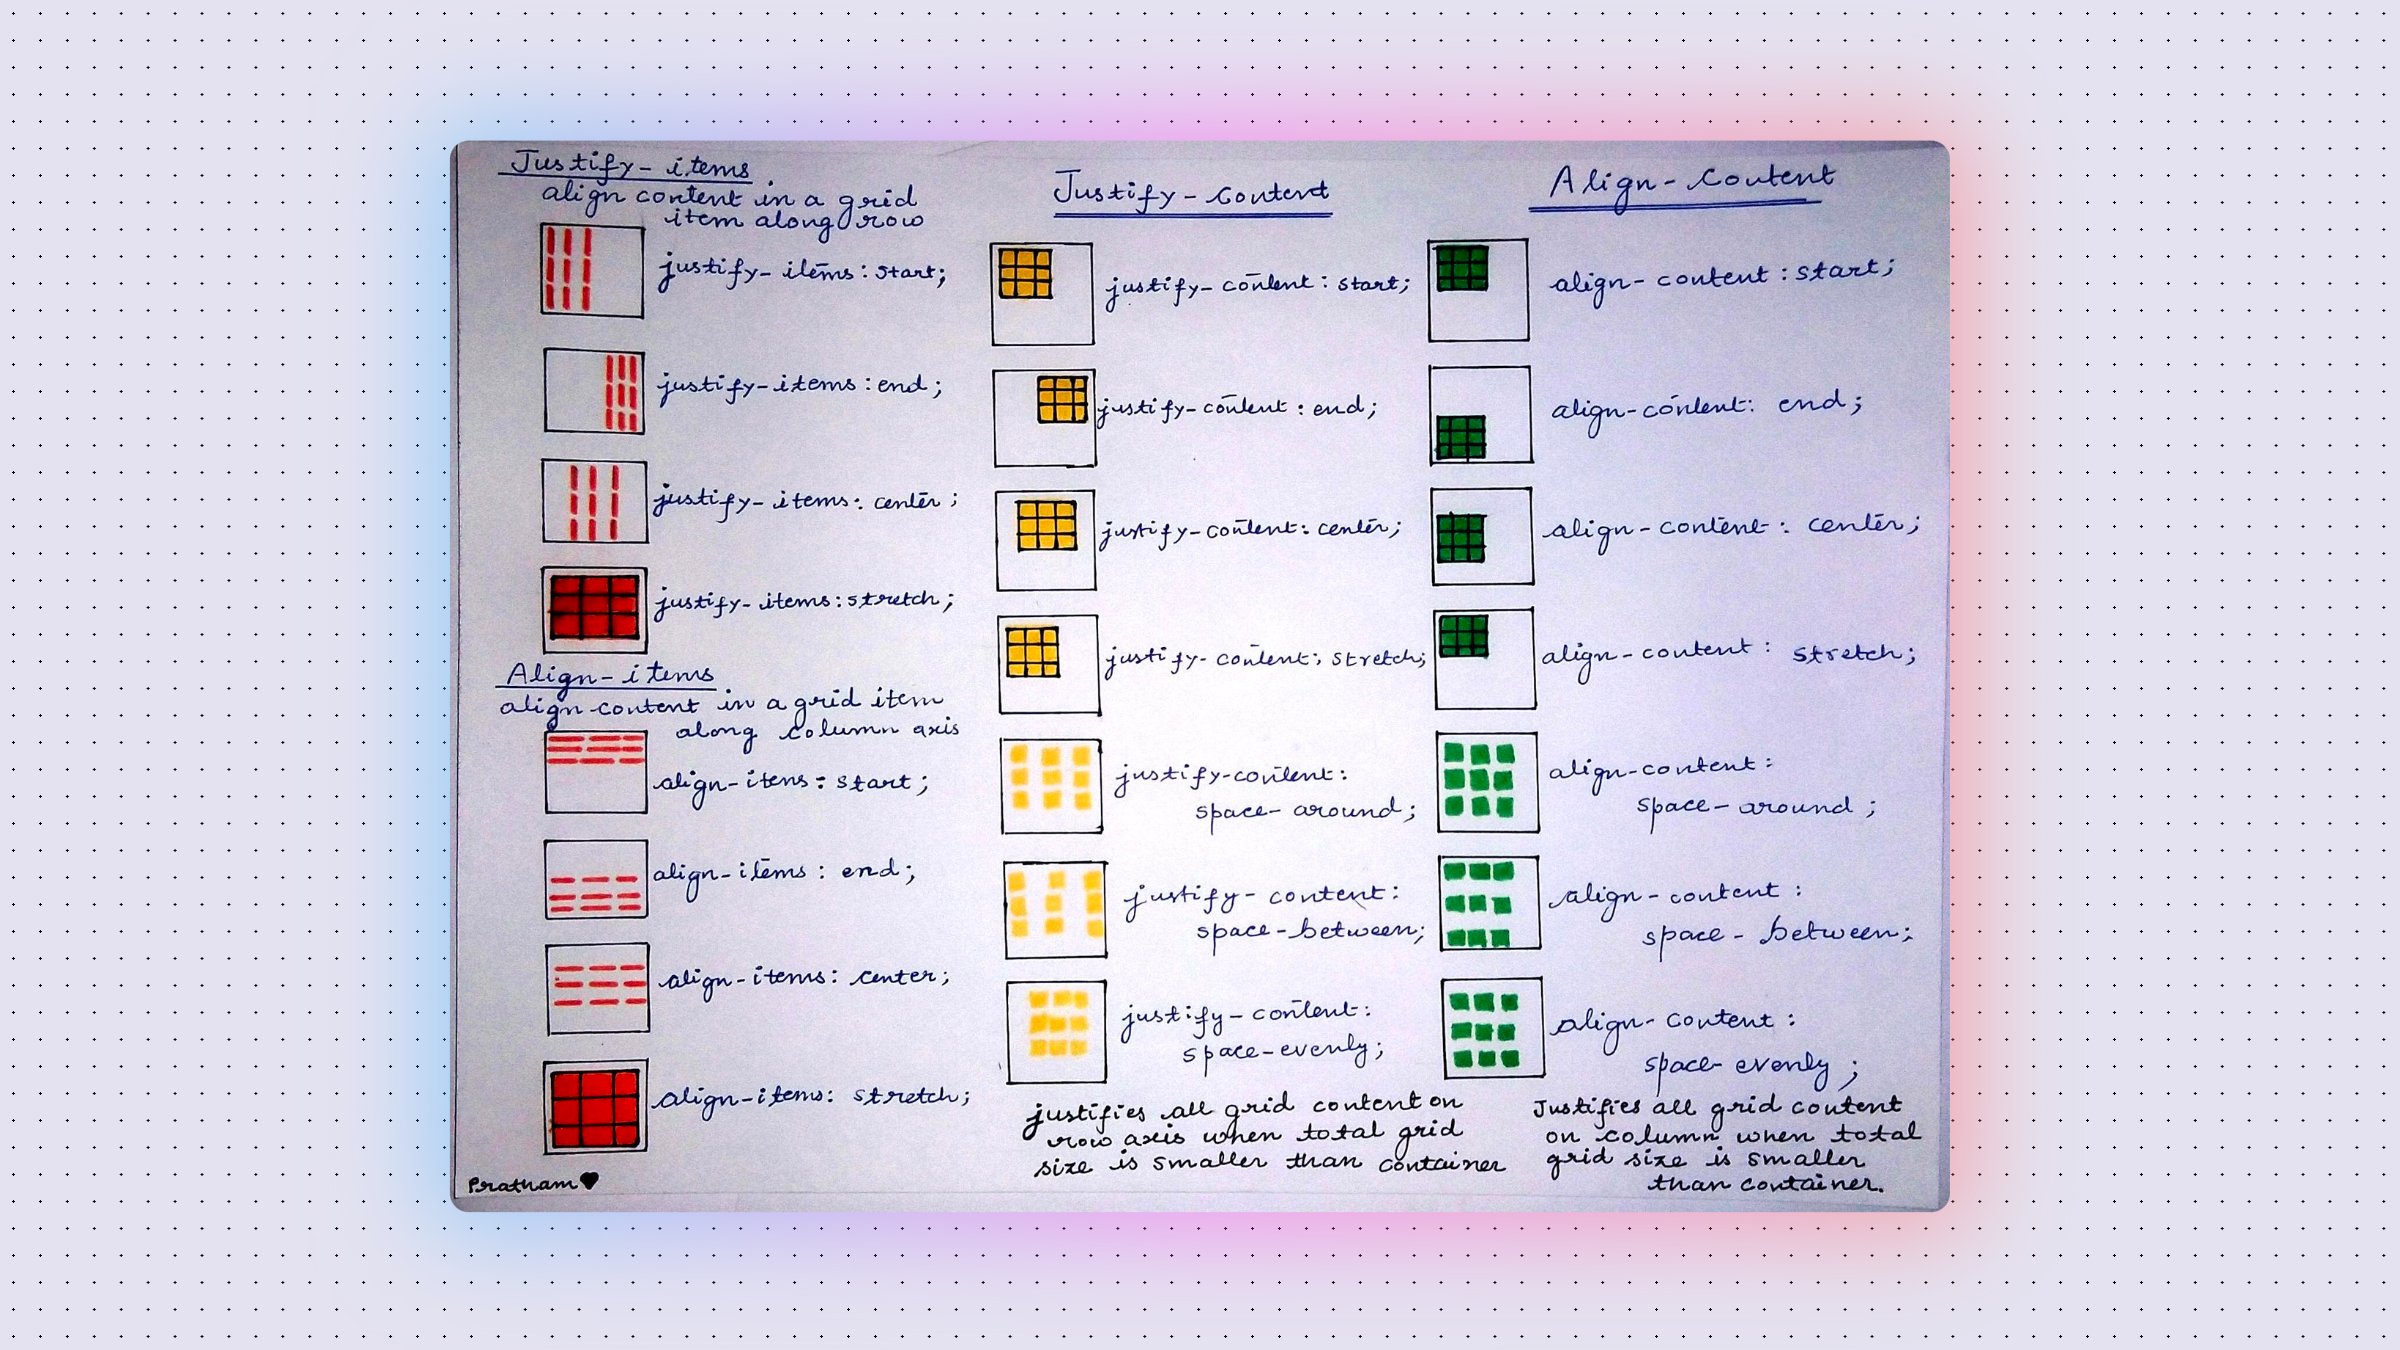 Justify-items
align content in a grid
item along row
justify-items: start;
justify-items: end;
justify-items: center;
justify-items: stretch;
Align-items
align-content in a grid item
along column axis
align-itens: start;
align-items: end;
align-items: center;
align-items: stretch;
Pratham
Justify-Content
justify-content: start;
justify-content: end;
justify-content: center;
justify-content: stretch;
justify-content:
space-around;
justify-content:
space-between;
justify-content:
space-evenly;
justifies all grid content on
row axis when total grid
size is smaller than container
Align-Content
align-content: start;
align-content: end;
align-content: center;
align-content: stretch;
align-content:
space-around;
align-content:
space-between;
align-content:
space-evenly;
Justifies all grid content
on column when total
grid size is smaller
than container.